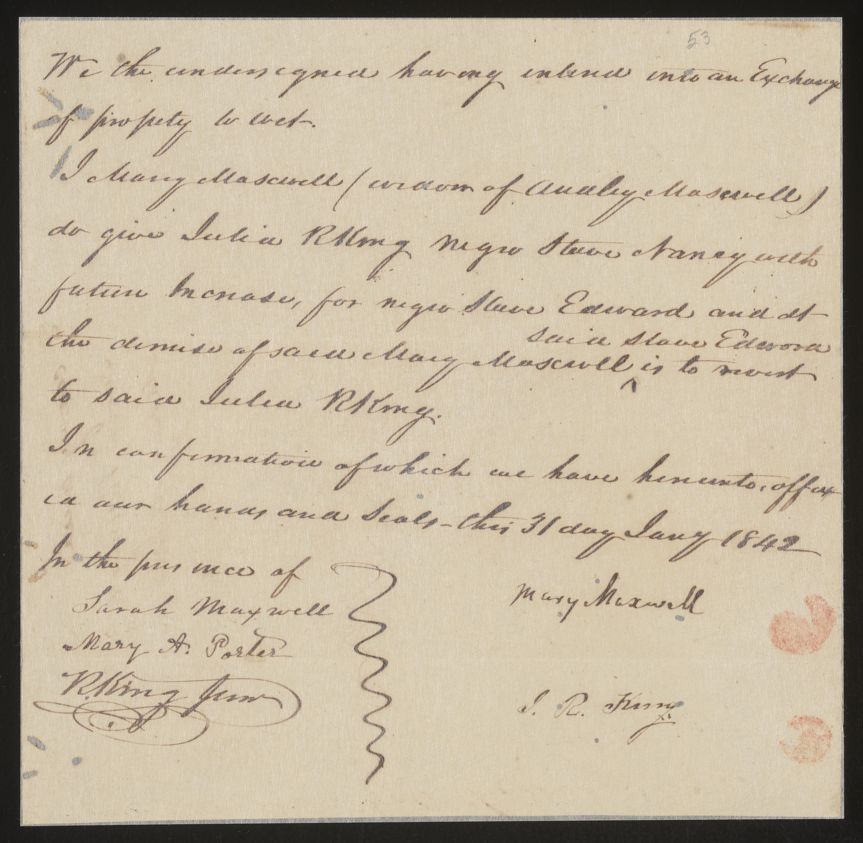 53
We the undersegned having entered into an Exchange
of propety to wet.
I Mary Maxwell (widow of Audley Maxwell)
do give Julia RKing negro Slave Nancy with
future Increase, for negro Slave Edward and at
said Slave Edward
the demise of said Mary Maxwell ^ is to revert
to said Julia RKing.
In confirmation of which we have hereunto, affix
ed our hands and Seals - this 31 day Jany 1842
In the presence of
Sarah Maxwell
Mary A. Porter
R.King Junr
Mary Maxwell
J. R. King